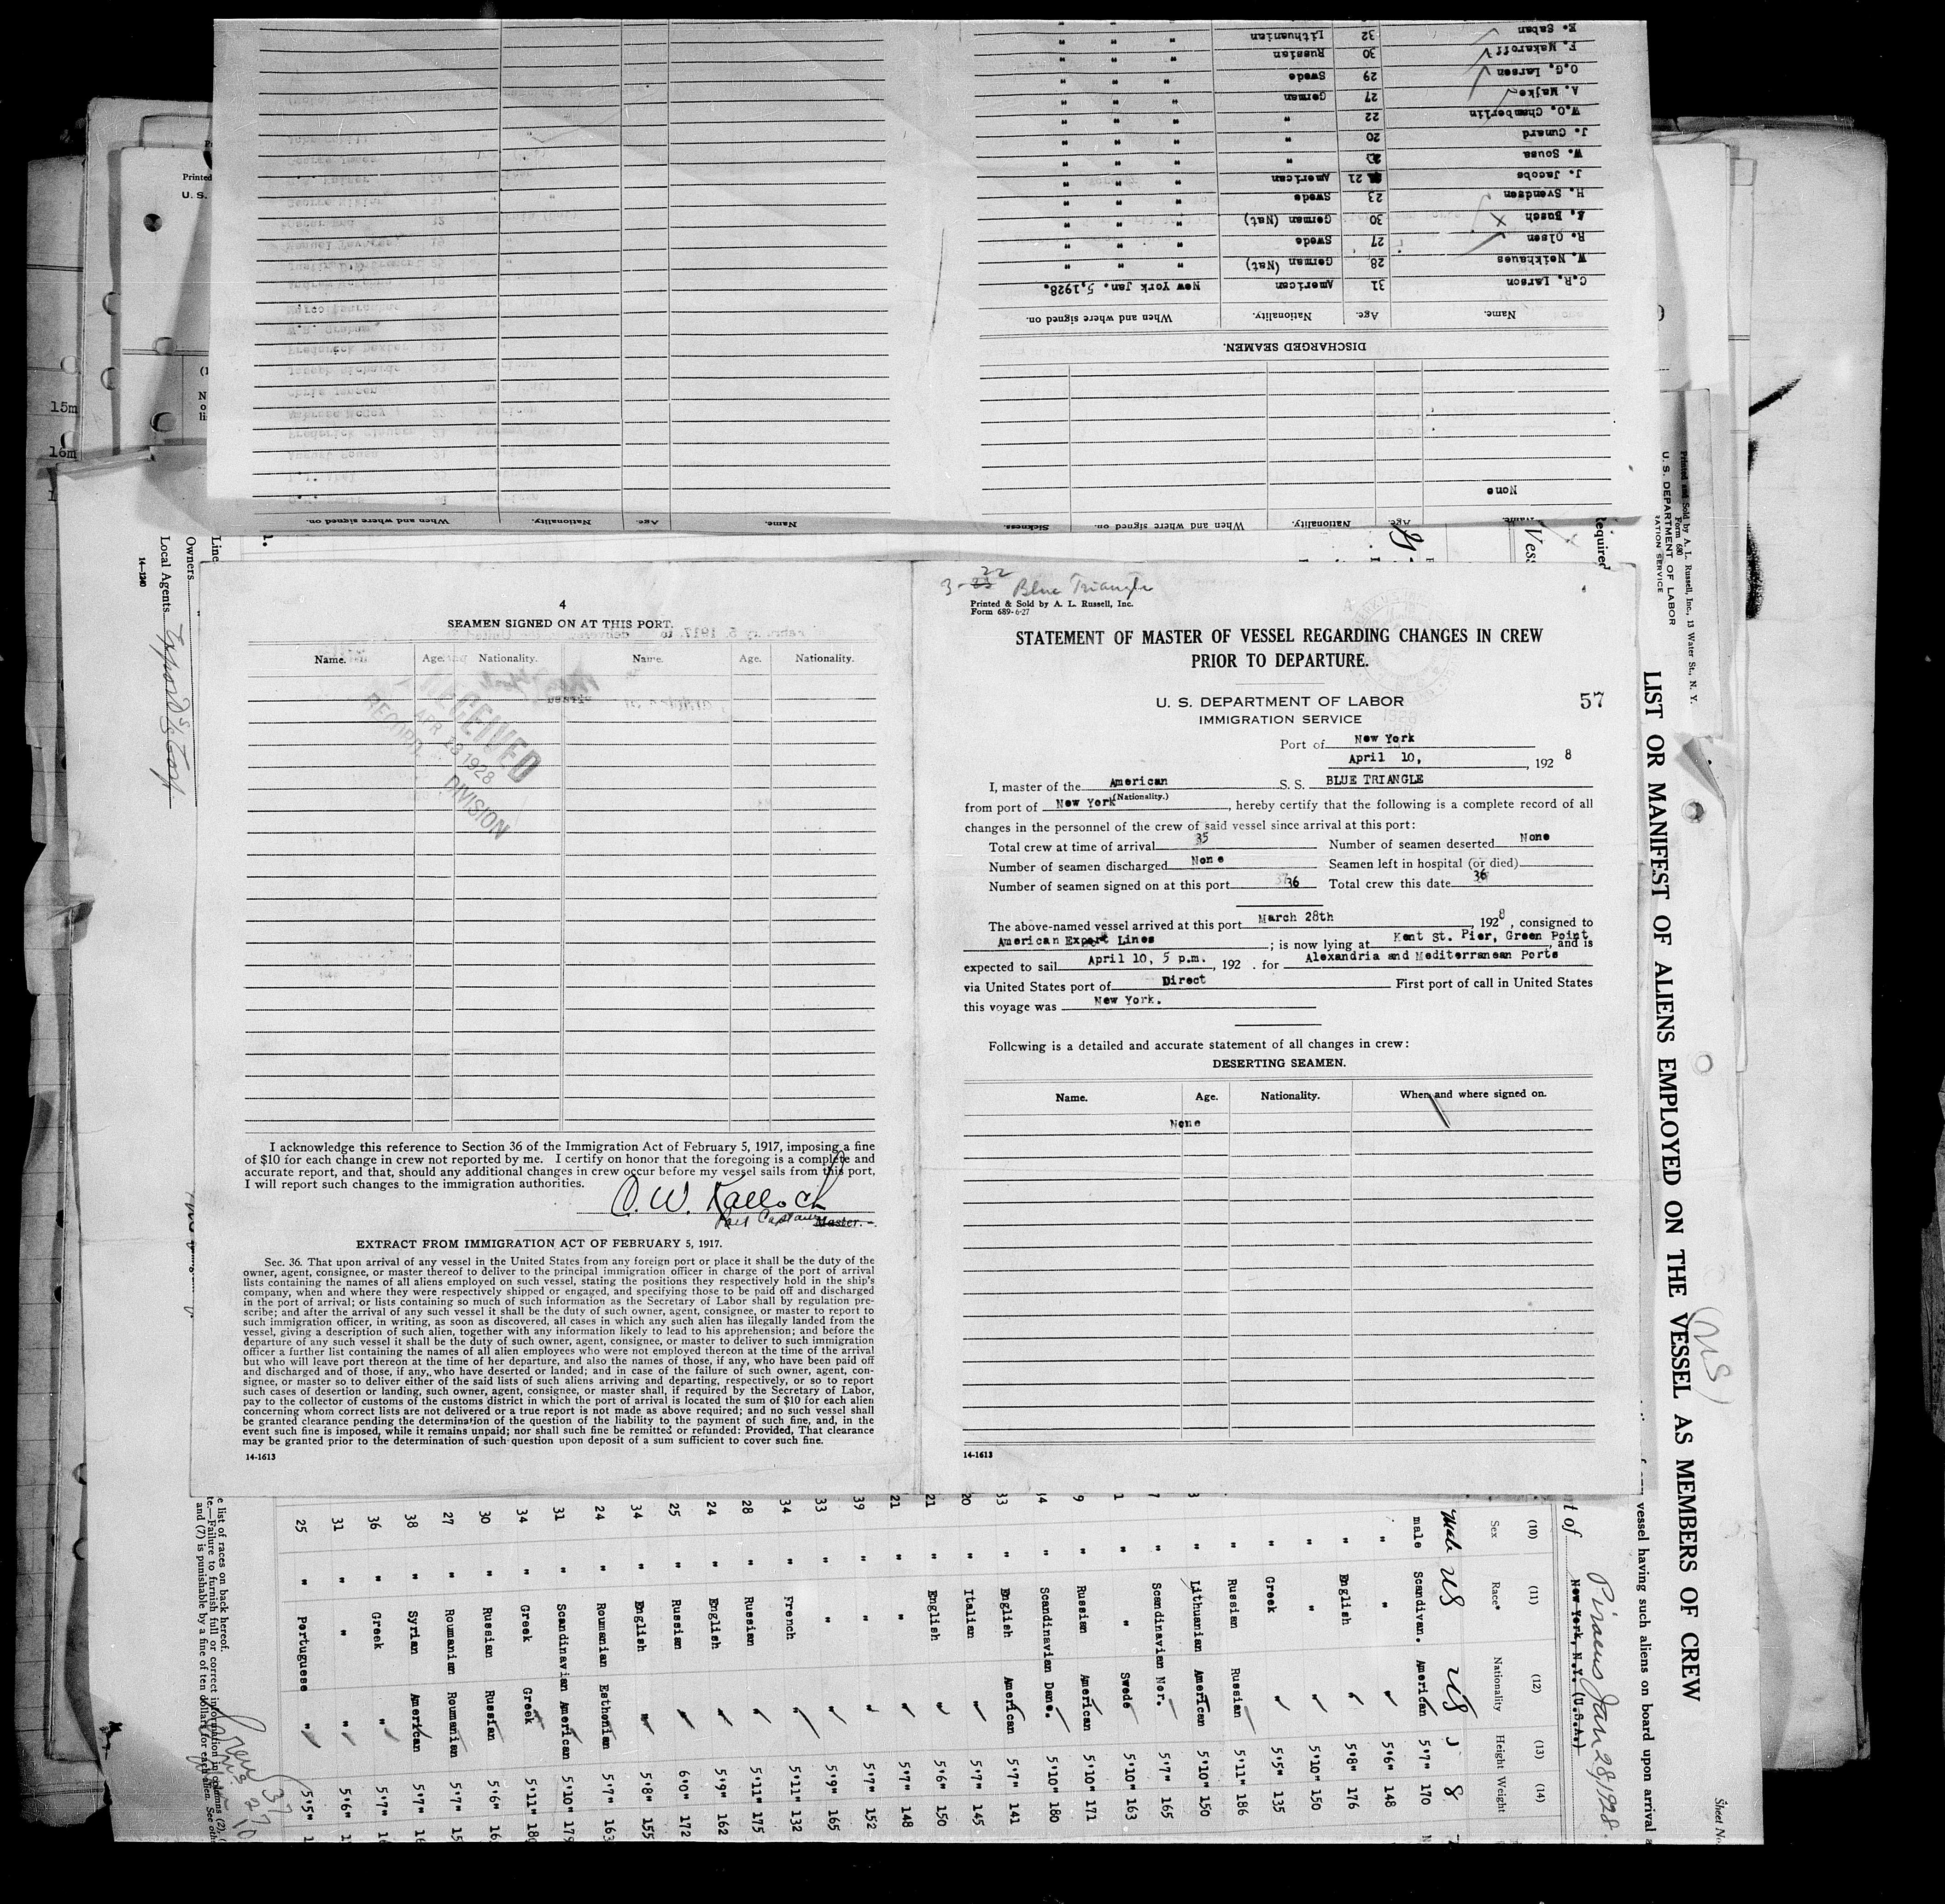 3-22 Blue Triangle
Printed & Sold by A. L. Russell, Inc.
Form 689-6-27
STATEMENT OF MASTER OF VESSEL REGARDING CHANGES IN CREW
PRIOR TO DEPARTURE.
U. S. DEPARTMENT OF LABOR
IMMIGRATION SERVICE
57
Port of New York
April 10, , 192 8
I, master of the American S. S. BLUE TRIANGLE
(Nationality.)
from port of New York , hereby certify that the following is a complete record of all
changes in the personnel of the crew of said vessel since arrival at this port:
Total crew at time of arrival 35 Number of seamen deserted None
Number of seamen discharged None Seamen left in hospital (or died)
Number of seamen signed on at this port 36 Total crew this date 36
The above-named vessel arrived at this port March 28th , 192 8 , consigned to
American Export Lines ; is now lying at Kent St. Pier, Green Point , and is
expected to sail April 10, 5 p.m. , 192 . for Alexandria and Mediterranean Ports
via United States port of Direct First port of call in United States
this voyage was New York.
Following is a detailed and accurate statement of all changes in crew:
DESERTING SEAMEN.
Name. Age. Nationality. When and where signed on.
None
14-1613
4
SEAMEN SIGNED ON AT THIS PORT.
Name. Age. Nationality. Name. Age. Nationality.
RECEIVED
APR 23 1928
RECORD DIVISION
I acknowledge this reference to Section 36 of the Immigration Act of February 5, 1917, imposing a fine
of $10 for each change in crew not reported by me. I certify on honor that the foregoing is a complete and
accurate report, and that, should any additional changes in crew occur before my vessel sails from this port,
I will report such changes to the immigration authorities.
C. W. Kalloch
Port Captain Master.
EXTRACT FROM IMMIGRATION ACT OF FEBRUARY 5, 1917.
Sec. 36. That upon arrival of any vessel in the United States from any foreign port or place it shall be the duty of the
owner, agent, consignee, or master thereof to deliver to the principal immigration officer in charge of the port of arrival
lists containing the names of all aliens employed on such vessel, stating the positions they respectively hold in the ship's
company, when and where they were respectively shipped or engaged, and specifying those to be paid off and discharged
in the port of arrival; or lists containing so much of such information as the Secretary of Labor shall by regulation pre-
scribe; and after the arrival of any such vessel it shall be the duty of such owner, agent, consignee, or master to report to
such immigration officer, in writing, as soon as discovered, all cases in which any such alien has illegally landed from the
vessel, giving a description of such alien, together with any information likely to lead to his apprehension; and before the
departure of any such vessel it shall be the duty of such owner, agent, consignee, or master to deliver to such immigration
officer a further list containing the names of all alien employees who were not employed thereon at the time of the arrival
but who will leave port thereon at the time of her departure, and also the names of those, if any, who have been paid off
and discharged and of those, if any, who have deserted or landed; and in case of the failure of such owner, agent, con-
signee, or master so to deliver either of the said lists of such aliens arriving and departing, respectively, or so to report
such cases of desertion or landing, such owner, agent, consignee, or master shall, if required by the Secretary of Labor,
pay to the collector of customs of the customs district in which the port of arrival is located the sum of $10 for each alien
concerning whom correct lists are not delivered or a true report is not made as above required; and no such vessel shall
be granted clearance pending the determination of the question of the liability to the payment of such fine, and, in the
event such fine is imposed, while it remains unpaid; nor shall such fine be remitted or refunded: Provided, That clearance
may be granted prior to the determination of such question upon deposit of a sum sufficient to cover such fine.
14-1613
None
DISCHARGED SEAMEN.
Name. Age. Nationality. When and where signed on.
C.R. Larson 31 American New York Jan. 5, 1928.
W. Neikhaues 28 German (Nat) " " "
R. Olsen 27 Swede " " "
Busch 30 German (Nat) " " "
H. Svendsen 23 Swede " " "
J. Jacobs 21 American " " "
W. Sousa " " " "
J. Gunard 20 " " " "
W.O. Chamberlin 22 " " " "
A. Majke 27 German " " "
O.G. Larsen 29 Swede " " "
F. Makaroff 30 Russian " " "
K. Gaban 32 Lithuanian " " "
Name. Age. Nationality. When and where signed on. Sickness.
Name. Age. Nationality. When and where signed on.
LIST OR MANIFEST OF ALIENS EMPLOYED ON THE VESSEL AS MEMBERS OF CREW
Printed and Sold by A. L. Russell, Inc., 13 Water St., N. Y.
Form 680
U. S. DEPARTMENT OF LABOR
Sheet No.
vessel having such aliens on board upon arrival
Piraeus Jan 28/1928.
New York, N.Y. (U.S.A.)
(10) (11) (12) (13) (14)
Sex Race* Nationality Height Weight
Male US US
male Scandivan. American 5'7" 170
" " " 5'6" 148
" English " 5'8" 176
" " " 5'10" 150
" Greek " 5'5" 135
" Russian Russian 5'11" 186
" Lithuanian American 5'10" 150
" Scandinavian Nor. 5'7" 165
" " Swede 5'10" 163
" Russian American 5'10" 171
" Scandinavian Dane. 5'10" 180
33 " English American 5'7" 141
20 " Italian " 5'7" 145
21 " English " 5'6" 150
21 " " " 5'7" 148
39 " " " 5'7" 152
33 " " " 5'9" 165
34 " French " 5'11" 132
28 " Russian " 5'11" 175
24 " English " 5'9" 162
25 " Russian " 6'0" 172
34 " English " 5'8" 155
24 " Roumanian Esthonian 5'7" 163
31 " Scandinavian American 5'10" 179
34 " Greek Greek 5'11" 180
30 " Russian Russian 5'6"
27 " Roumanian Roumanian 5'7"
38 " Syrian American 5'7"
36 " Greek " 5'7"
31 " " " 5'6"
25 " Portuguese " 5'5"
Line
Owners
Local Agents Export S.S. Corp
14-1240
15m
16m